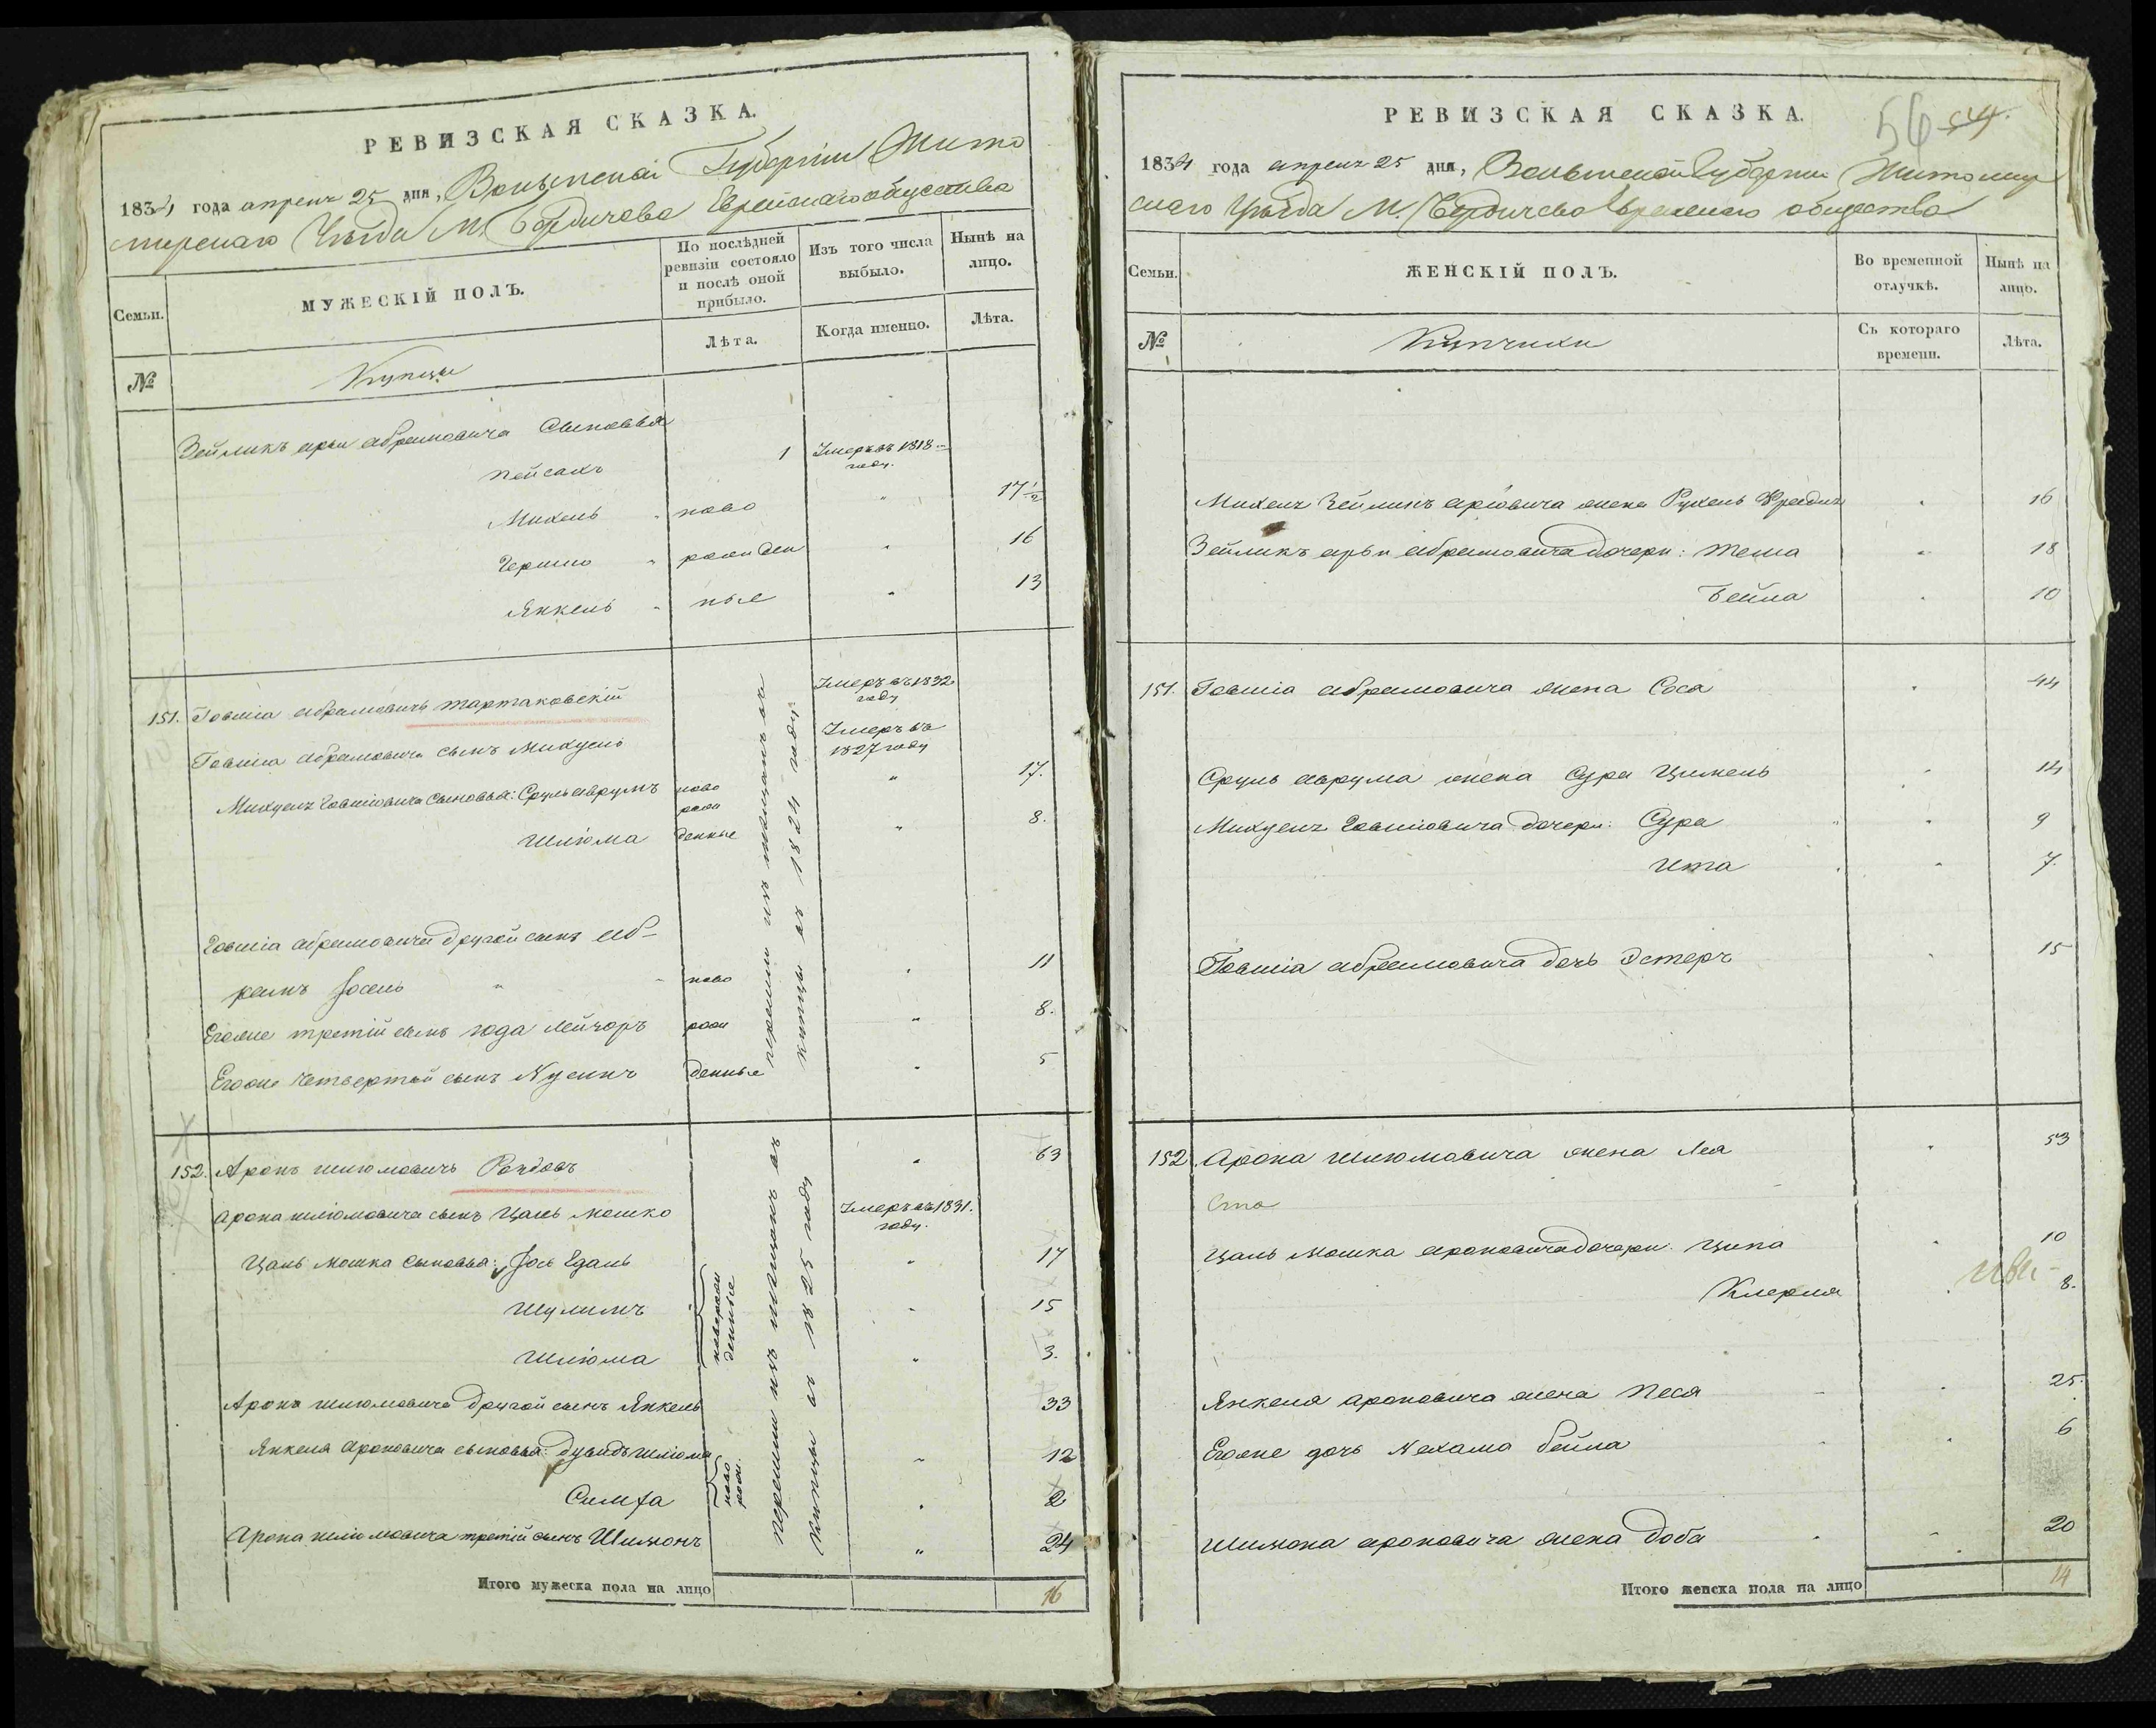 РЕВИЗСКАЯ СКАЗКА.
1834 года апреля 25 дня, Волынской Губернии Жито
мирскаго Уѣзда М. Бердичева Еврейскаго общества
Семьи.
МУЖЕСКІЙ ПОЛЪ.
По послѣдней ревизіи состояло и послѣ оной прибыло.
Изъ того числа выбыло.
Нынѣ на лицо.
Лѣта.
Когда именно.
Лѣта.
№
Купцы
Зейликъ арьи абрамовича сыновья
Пейсахъ 1 Умеръ въ 1818 году.
Михель ново " 17½
Гершко рожден " 16
Янкель ные " 13
151. Говшіа абрамовичъ тартаковскій Умеръ въ 1832 году
Говшіа абрамовича сынъ Михуель Умеръ въ 1827 году
Михуеля Говшіовича сыновья: Сруль аврумъ ново " 17.
шліома рож денные " 8.
Говшіа абрамовича другой сынъ аб-
рамъ Іосель " ново " 11
Егоже третій сынъ юда лейзоръ рож " 8.
Егоже четвертый сынъ Нусинъ денные " 5
перешли изъ мещанъ въ
купцы въ 1824 году
152. Аронъ шліомовичъ " 63
Арона шліомовича сынъ Цаль мошко Умеръ въ 1831. году.
Цаль мошка сыновья: Іось " 17
шулимъ " 15
шліома " 3.
новорож
денные
Арона шліомовича другой сынъ Янкель 33
Янкеля Ароновича сыновья: дувидъ шліома " 12
Симха " 2
ново
рож.
Арона шліомовича третій сынъ Шимонъ " 24
перешли изъ мещанъ въ
купцы въ 1825 году
Итого мужеска пола на лицо 16
РЕВИЗСКАЯ СКАЗКА.
56 54.
1834 года апреля 25 дня, Волынской Губернии Житомир
скаго Уѣзда М. Бердичева Еврейскаго общества
Семьи.
ЖЕНСКІЙ ПОЛЪ.
Во временной отлучкѣ.
Нынѣ на лицо.
№
Купчихи
Съ котораго времени.
Лѣта.
Михеля Зейликъ арьовича жена Рухель Фрейда " 16
Зейликъ арьи абрамовича дочери: тема " 18
Бейла " 10
151. Говшіа абрамовича жена Соса " 44
Сруль аврума жена Сура Цимель " 14
Михуеля Говшіовича дочери: Сура " 9
Ита " 7.
Говшіа абрамовича дочь Эстеръ " 15
152 Арона шліомовича жена Лея " 53
Цаль мошка ароновича дочери: Ципа " 10
8.
Янкеля ароновича жена Песя " 25.
Егоже дочь Нехама бейла " 6
Шимона ароновича жена доба " 20
Итого женска пола на лицо 14